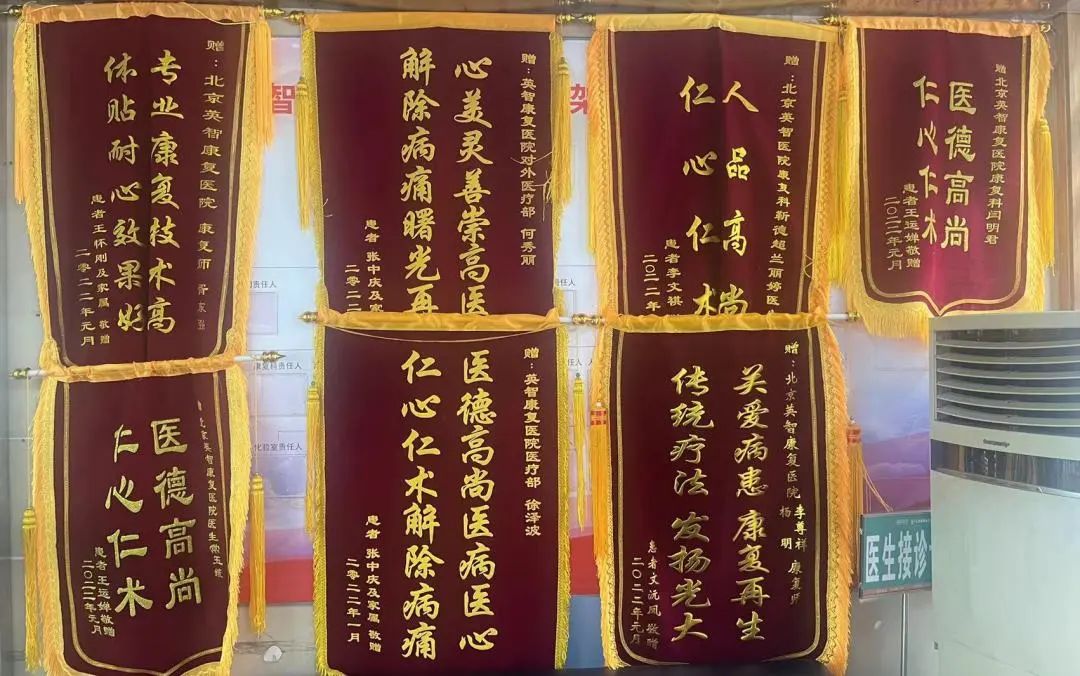 赠：北京英智康复医院 康复师
专业康复技术高
体贴耐心效果好
患者王怀刚及家属 敬赠
二零二二年元月
赠：英智康复医院对外医疗部 何秀丽
心美灵善崇高医
解除病痛曙光再
患者 张中庆及家
二零二二
赠：北京英智医院康复科靳德超兰丽婷医
人品高尚
仁心仁术
患者李文祺
二〇二一年
赠北京英智康复医院康复科闫明君
医德高尚
仁心仁术
患者王运婵敬赠
二〇二二年元月
北京英智康复医院医生
医德高尚
仁心仁术
患者王运婵敬赠
二〇二二年元月
赠：英智康复医院医疗部 徐泽波
医德高尚医病医心
仁心仁术解除病痛
患者 张中庆及家属 敬赠
二零二二年一月
赠：北京英智康复医院 李尊祥 杨明 康复师
关爱病患 康复再生
传统疗法 发扬光大
患者文沅凤 敬赠
二〇二二年元月
智
架
责任人
康复科责任人
化验室责任人
医生接诊